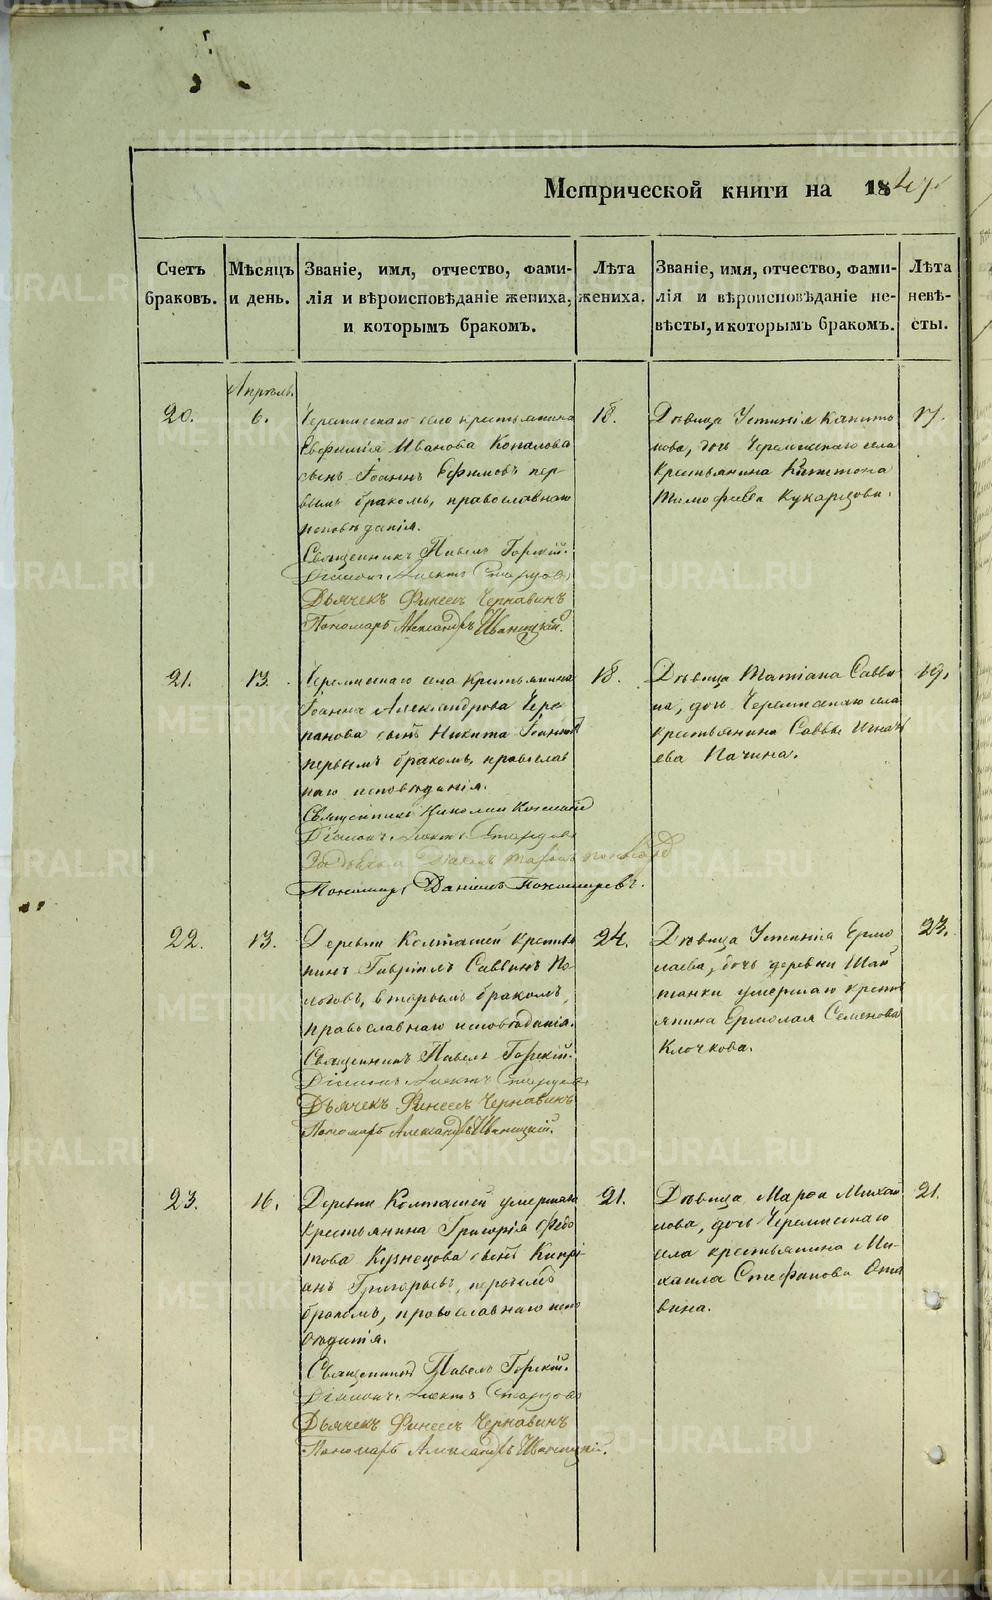 Метрической книги на 1847
Счетъ браковъ.
Мѣсяцъ и день.
Званіе, имя, отчество, фами-
лія и вѣроисповѣданіе жениха,
и которымъ бракомъ.
Лѣта жениха.
Званіе, имя, отчество, фами-
лія и вѣроисповѣданіе не-
вѣсты, и которымъ бракомъ.
Лѣта невѣ-
сты.
Апрѣль.
20.
6.
Черемисскаго села крестьянина
Евфимія Иванова Копалова
сынъ Іоаннъ Ефимовъ пер-
вымъ бракомъ, православнаго
исповѣданія.
Священникъ Павелъ Горскій.
Діаконъ
Дьячекъ Финеесъ Чернавинъ
Пономарь Александръ Иваницкій.
18.
Дѣвица Устинія Капито
нова, дочь Черемисскаго села
крестьянина Капитона
Тимофеева Кукарцова.
17.
21.
13.
Черемисскаго села крестьянина
Іоанна Александрова Чере
панова сынъ Никита Іоанновъ
первымъ бракомъ, православ
наго исповѣданія.
Священникъ Николай
Діаконъ
Пономарь Даніилъ Пономаревъ.
18.
Дѣвица Татіана Савви
на, дочь Черемисскаго села
крестьянина Саввы Игнать
ева Пачина.
19.
22.
13.
Деревни Колташей крестья
нинъ Гавріилъ Саввинъ По
логовъ, вторымъ бракомъ,
православнаго исповѣданія.
Священникъ Павелъ Горскій.
Діаконъ
Дьячекъ Финеесъ Чернавинъ
Пономарь Александръ Иваницкій.
24.
Дѣвица Устинія Ермо
лаева, дочь деревни Шай
танки умершаго кресть
янина Ермолая Семенова
Клочкова.
23.
23.
16.
Деревни Колташей умершаго
крестьянина Григорія Федо
това Кузнецова сынъ Кипрі
анъ Григорьевъ, первымъ
бракомъ, православнаго испо
вѣданія.
Священникъ Павелъ Горскій.
Діаконъ
Дьячекъ Финеесъ Чернавинъ
Пономарь Александръ Иваницкій.
21.
Дѣвица Марѳа Михай
лова, дочь Черемисскаго
села крестьянина Ми-
хаила Стефанова Ота
вина.
21.
METRIKI.GASO-URAL.RU